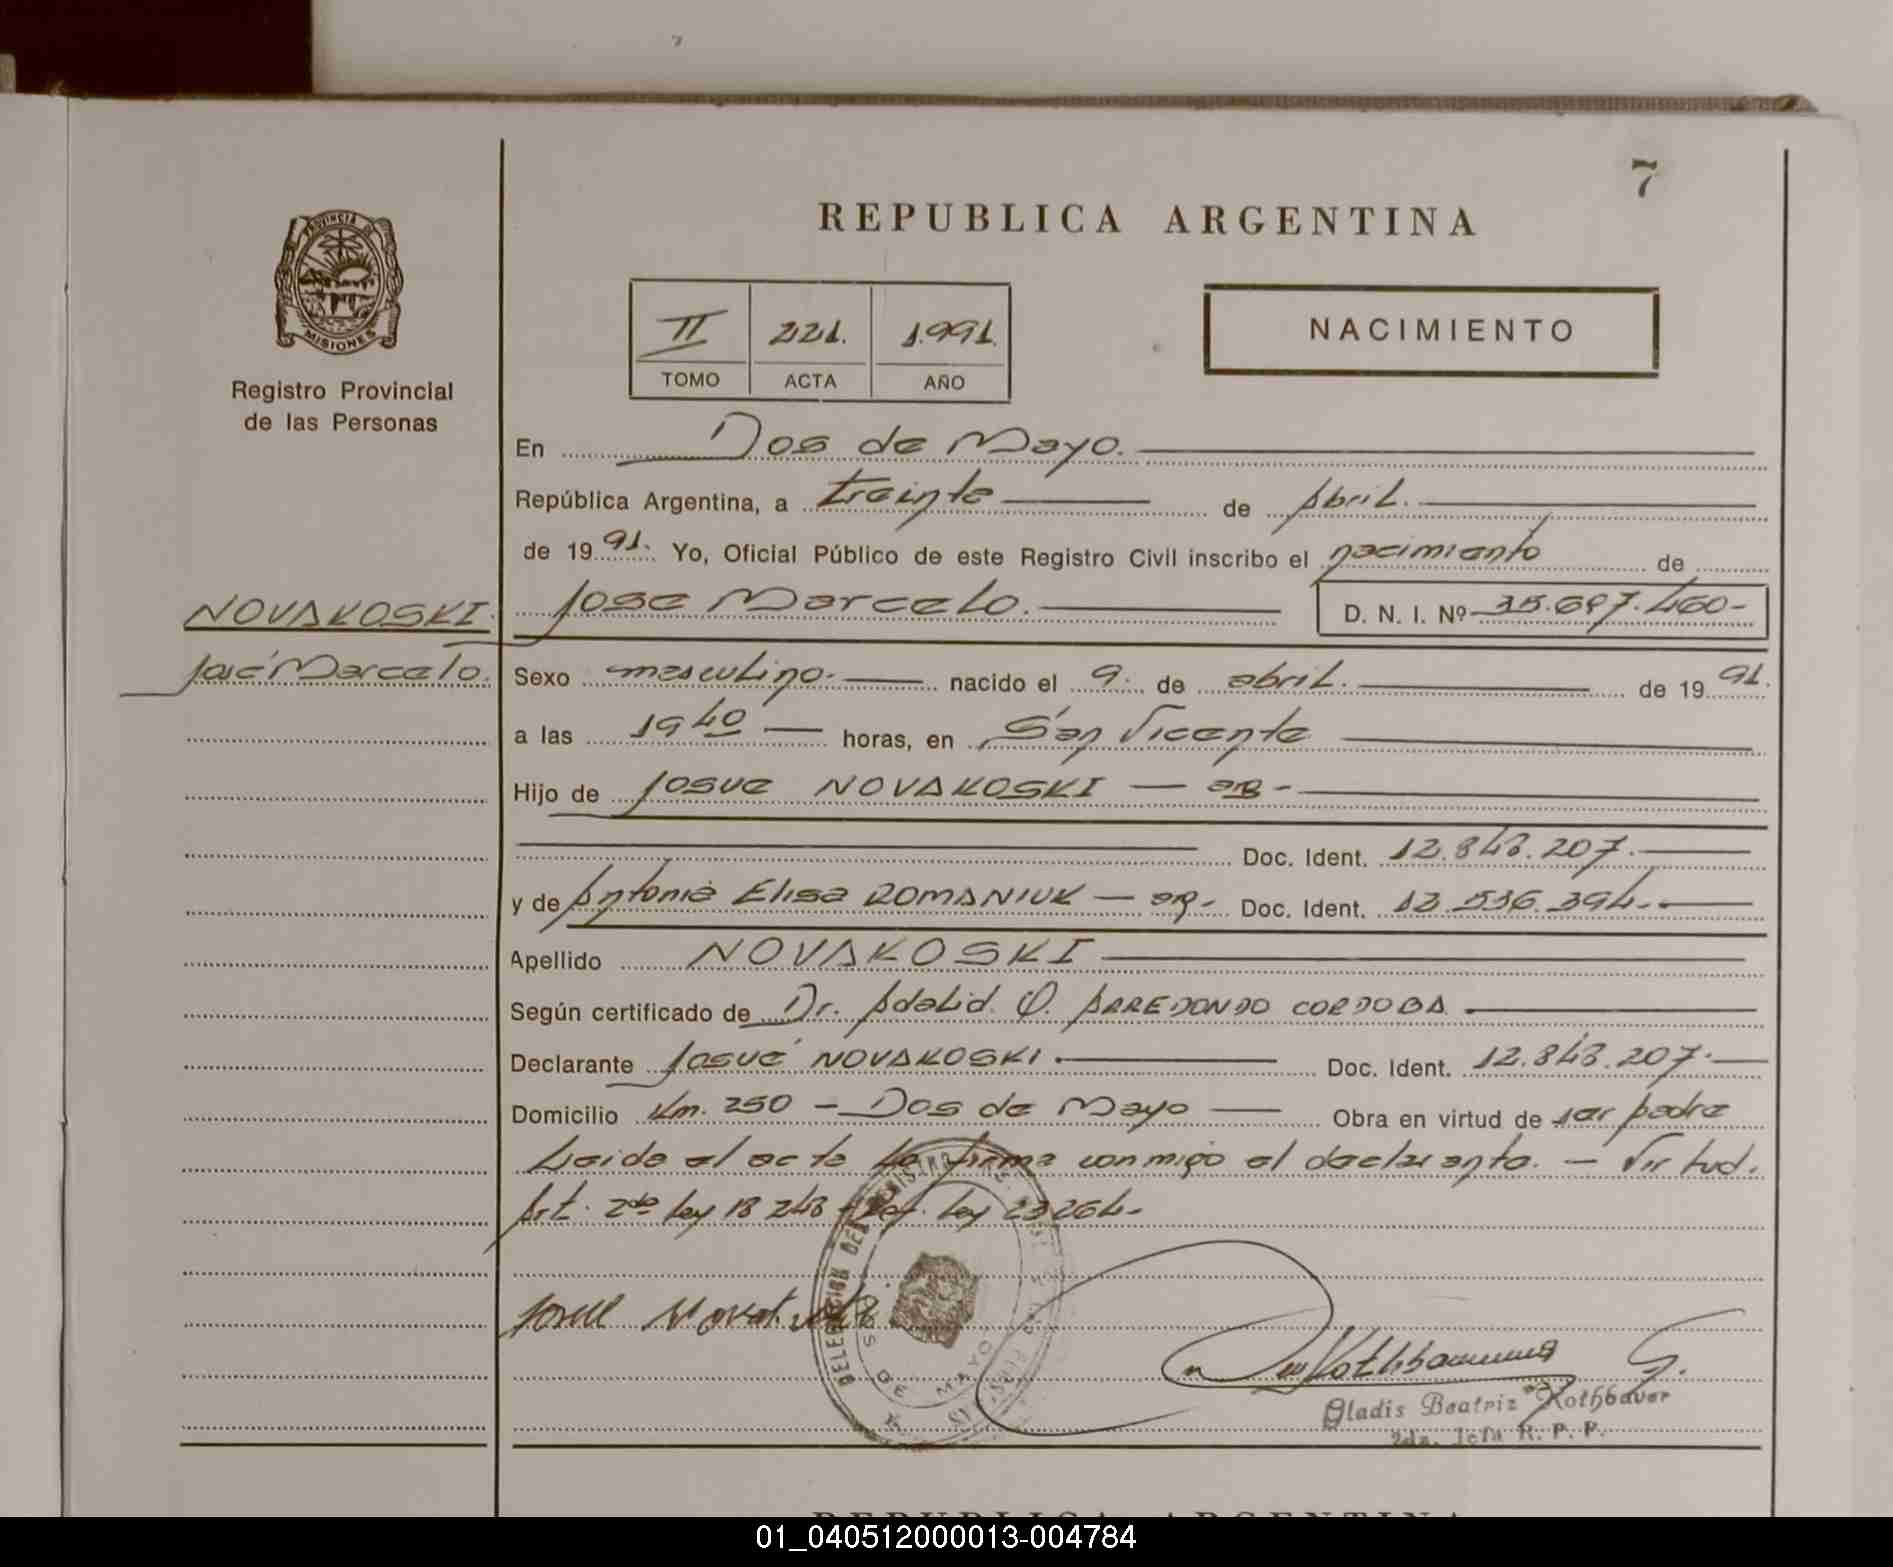 7
REPUBLICA ARGENTINA
PROVINCIA DE
MISIONES
Registro Provincial
de las Personas
II 221. 1.991.
TOMO ACTA AÑO
NACIMIENTO
En Dos de Mayo.
República Argentina, a treinta de Abril.
de 1991. Yo, Oficial Público de este Registro Civil inscribo el nacimiento de
NOVAKOSKI. Jose Marcelo. D. N. I. Nº 35.697.460-
José Marcelo. Sexo masculino. nacido el 9. de abril. de 1991.
a las 19 40 horas, en San Vicente
Hijo de Josue NOVAKOSKI — ar -
Doc. Ident. 12.848.207.
y de Antonia Elisa ROMANIUK — ar - Doc. Ident. 12.536.394.
Apellido NOVAKOSKI
Según certificado de Dr. Adalid. O. ARREDONDO CORDOBA
Declarante Josué NOVAKOSKI. Doc. Ident. 12.848.207.
Domicilio Km. 250 - Dos de Mayo Obra en virtud de ser padre
Leida el acta la firma conmigo el declarante. - Virtud.
Art. 2do ley 18 248 - Ref. ley 23264-
DELEGACION DEL REGISTRO
DOS DE MAYO
Gladis Beatriz Rothbauer
2da. Jefa R. P. P.
REPUBLICA ARGENTINA
01_040512000013-004784